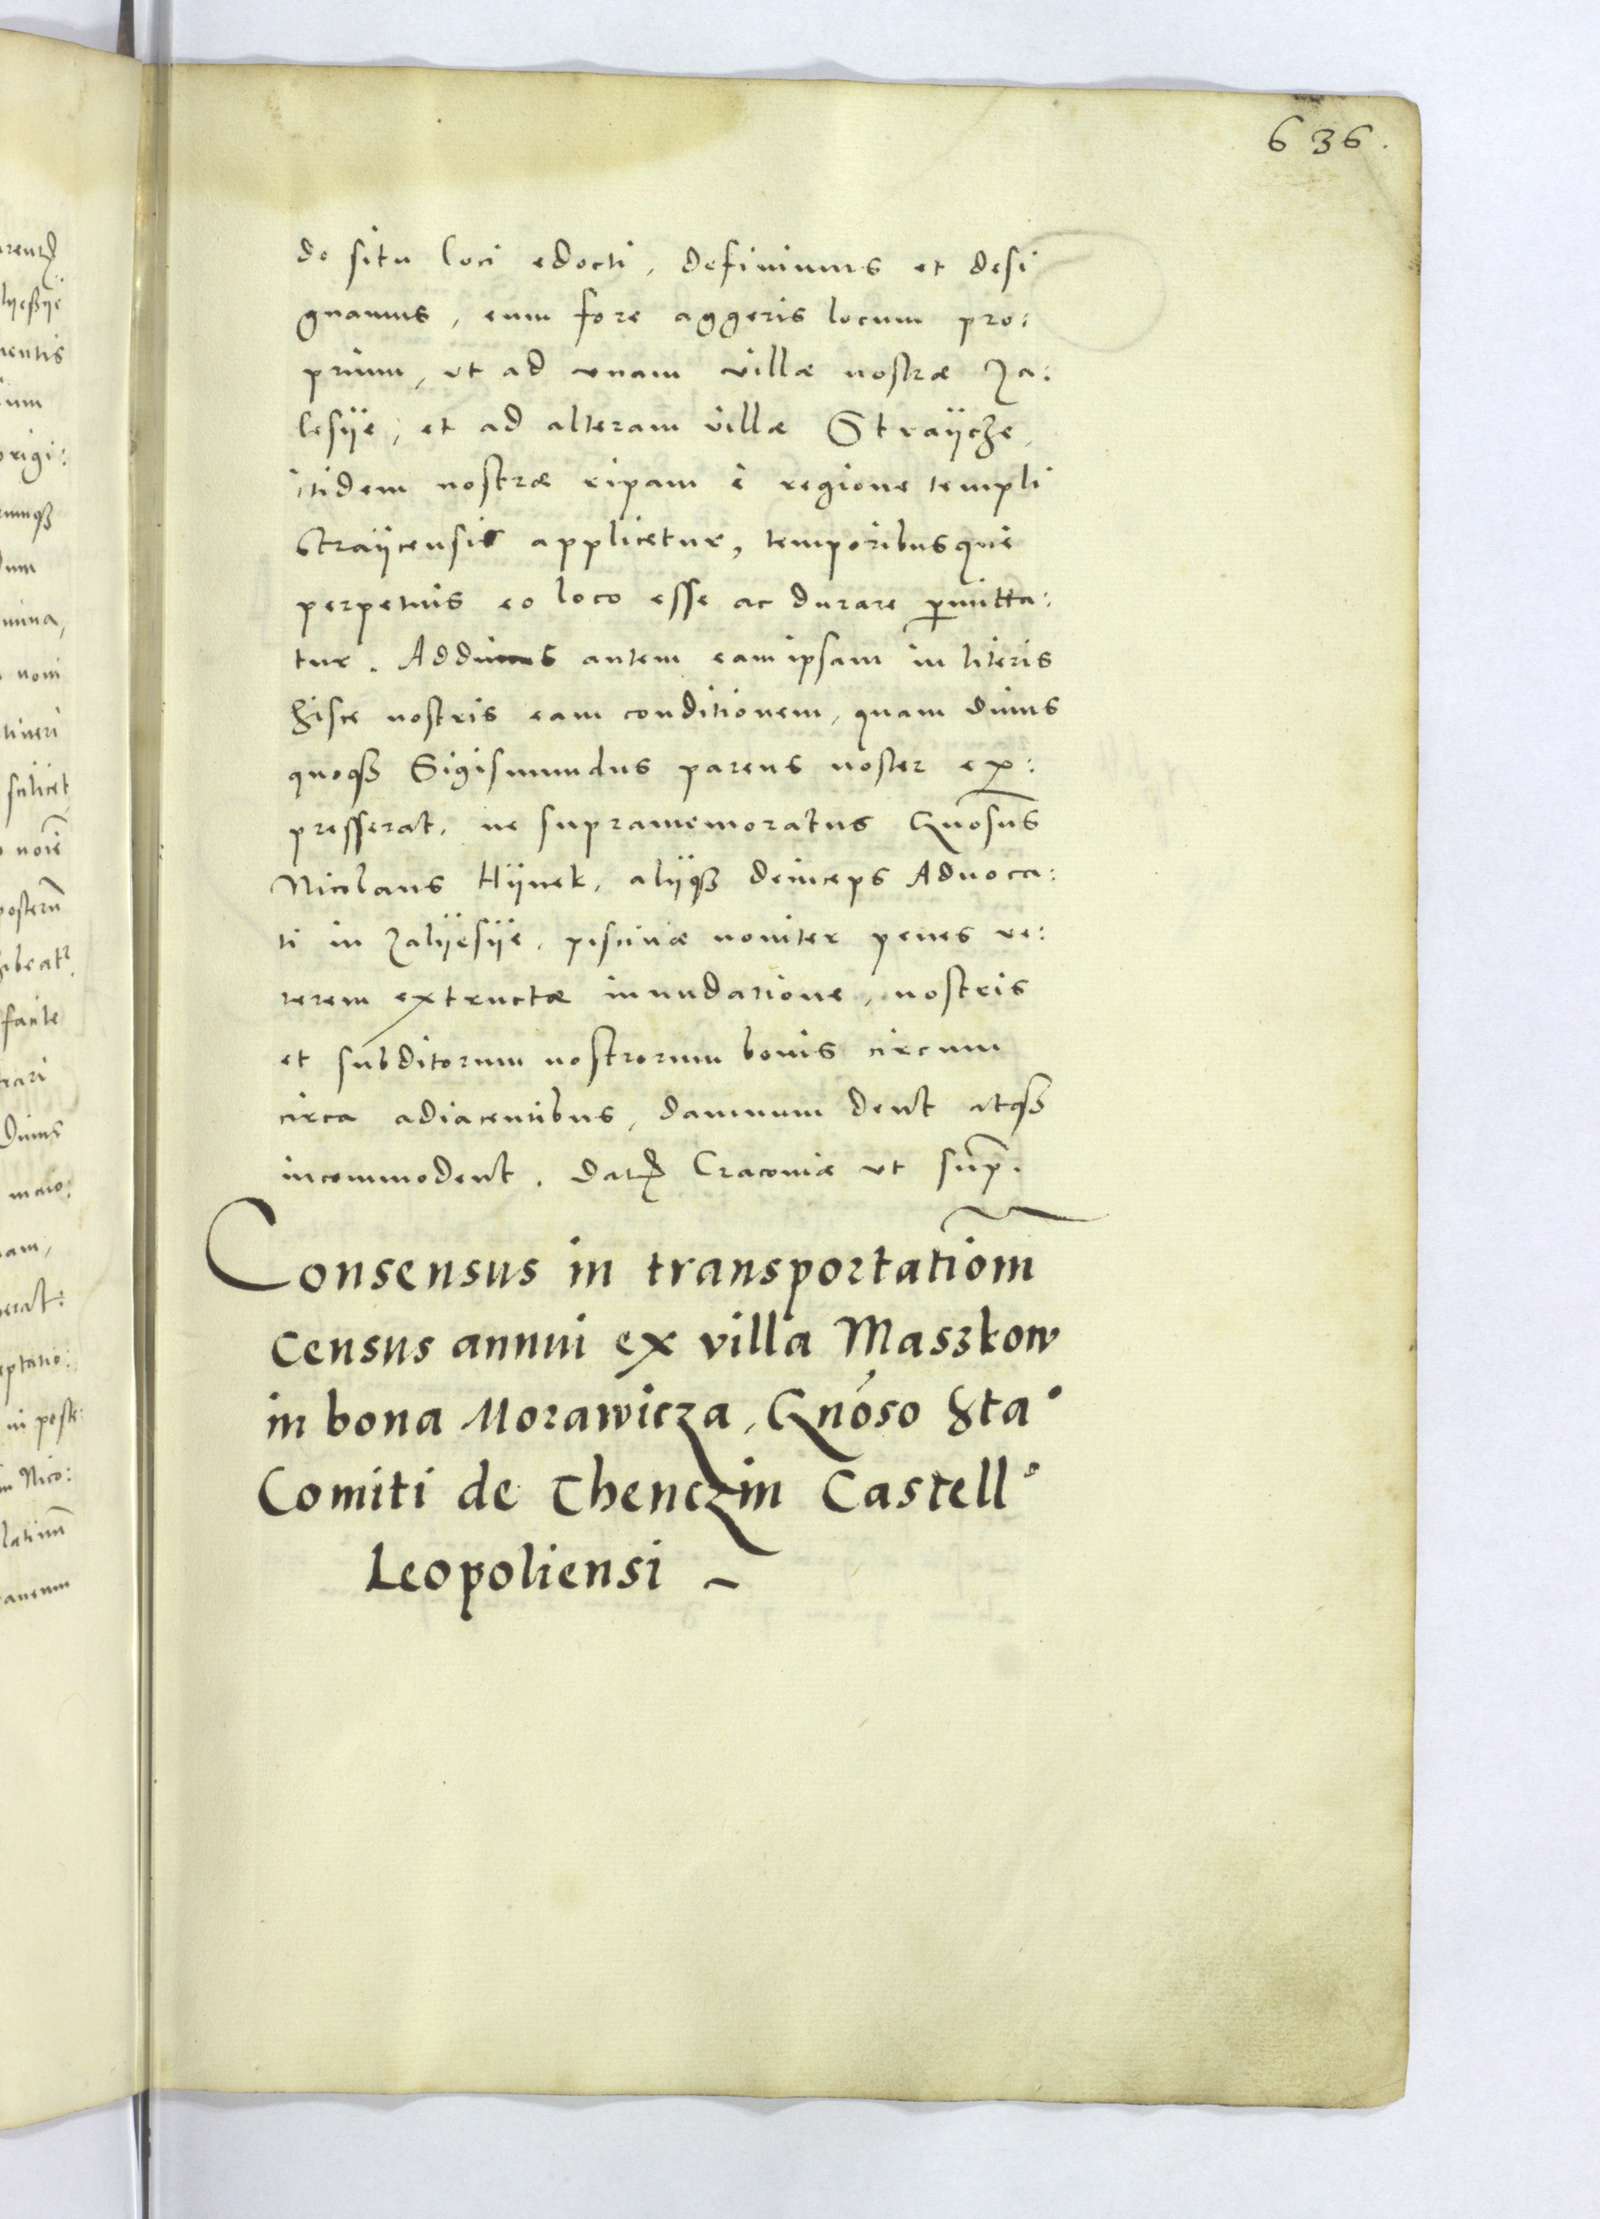 636.
de situ loci edocti, definimus et desi
gnamus, eum fore aggeris locum pro:
prium, ut ad unam villæ nostræ Za:
lesÿe, et ad alteram villæ Straÿcze,
itidem nostræ ripam è regione templi
Straÿcensis applicetur, temporibusque
perpetuis eo loco esse ac durare p̱mitta:
tur. Addimus autem eam ipsam in literis
hisce nostris eam conditionem, quam divus
quoqȝ Sigismundus parens noster ex:
presserat, ne supramemoratus Gn̄osus
Nicolaus Hÿnek, alÿqȝ deinceps Advoca:
ti in Zalÿesÿe, piscinæ noviter penes ve:
terem extructæ inundatione, nostris
et subditorum nostrorum bonis circum
circa adiacentibus, damnum dent atqȝ
incommodent. Datꝭ Cracoviæ ut sup̄.
Consensus in transportatiōm
census annui ex villa Maszkow
in bona Morawicza, Gn̄oso Sta.
Comiti de Thenczin Castell.
Leopoliensi ~